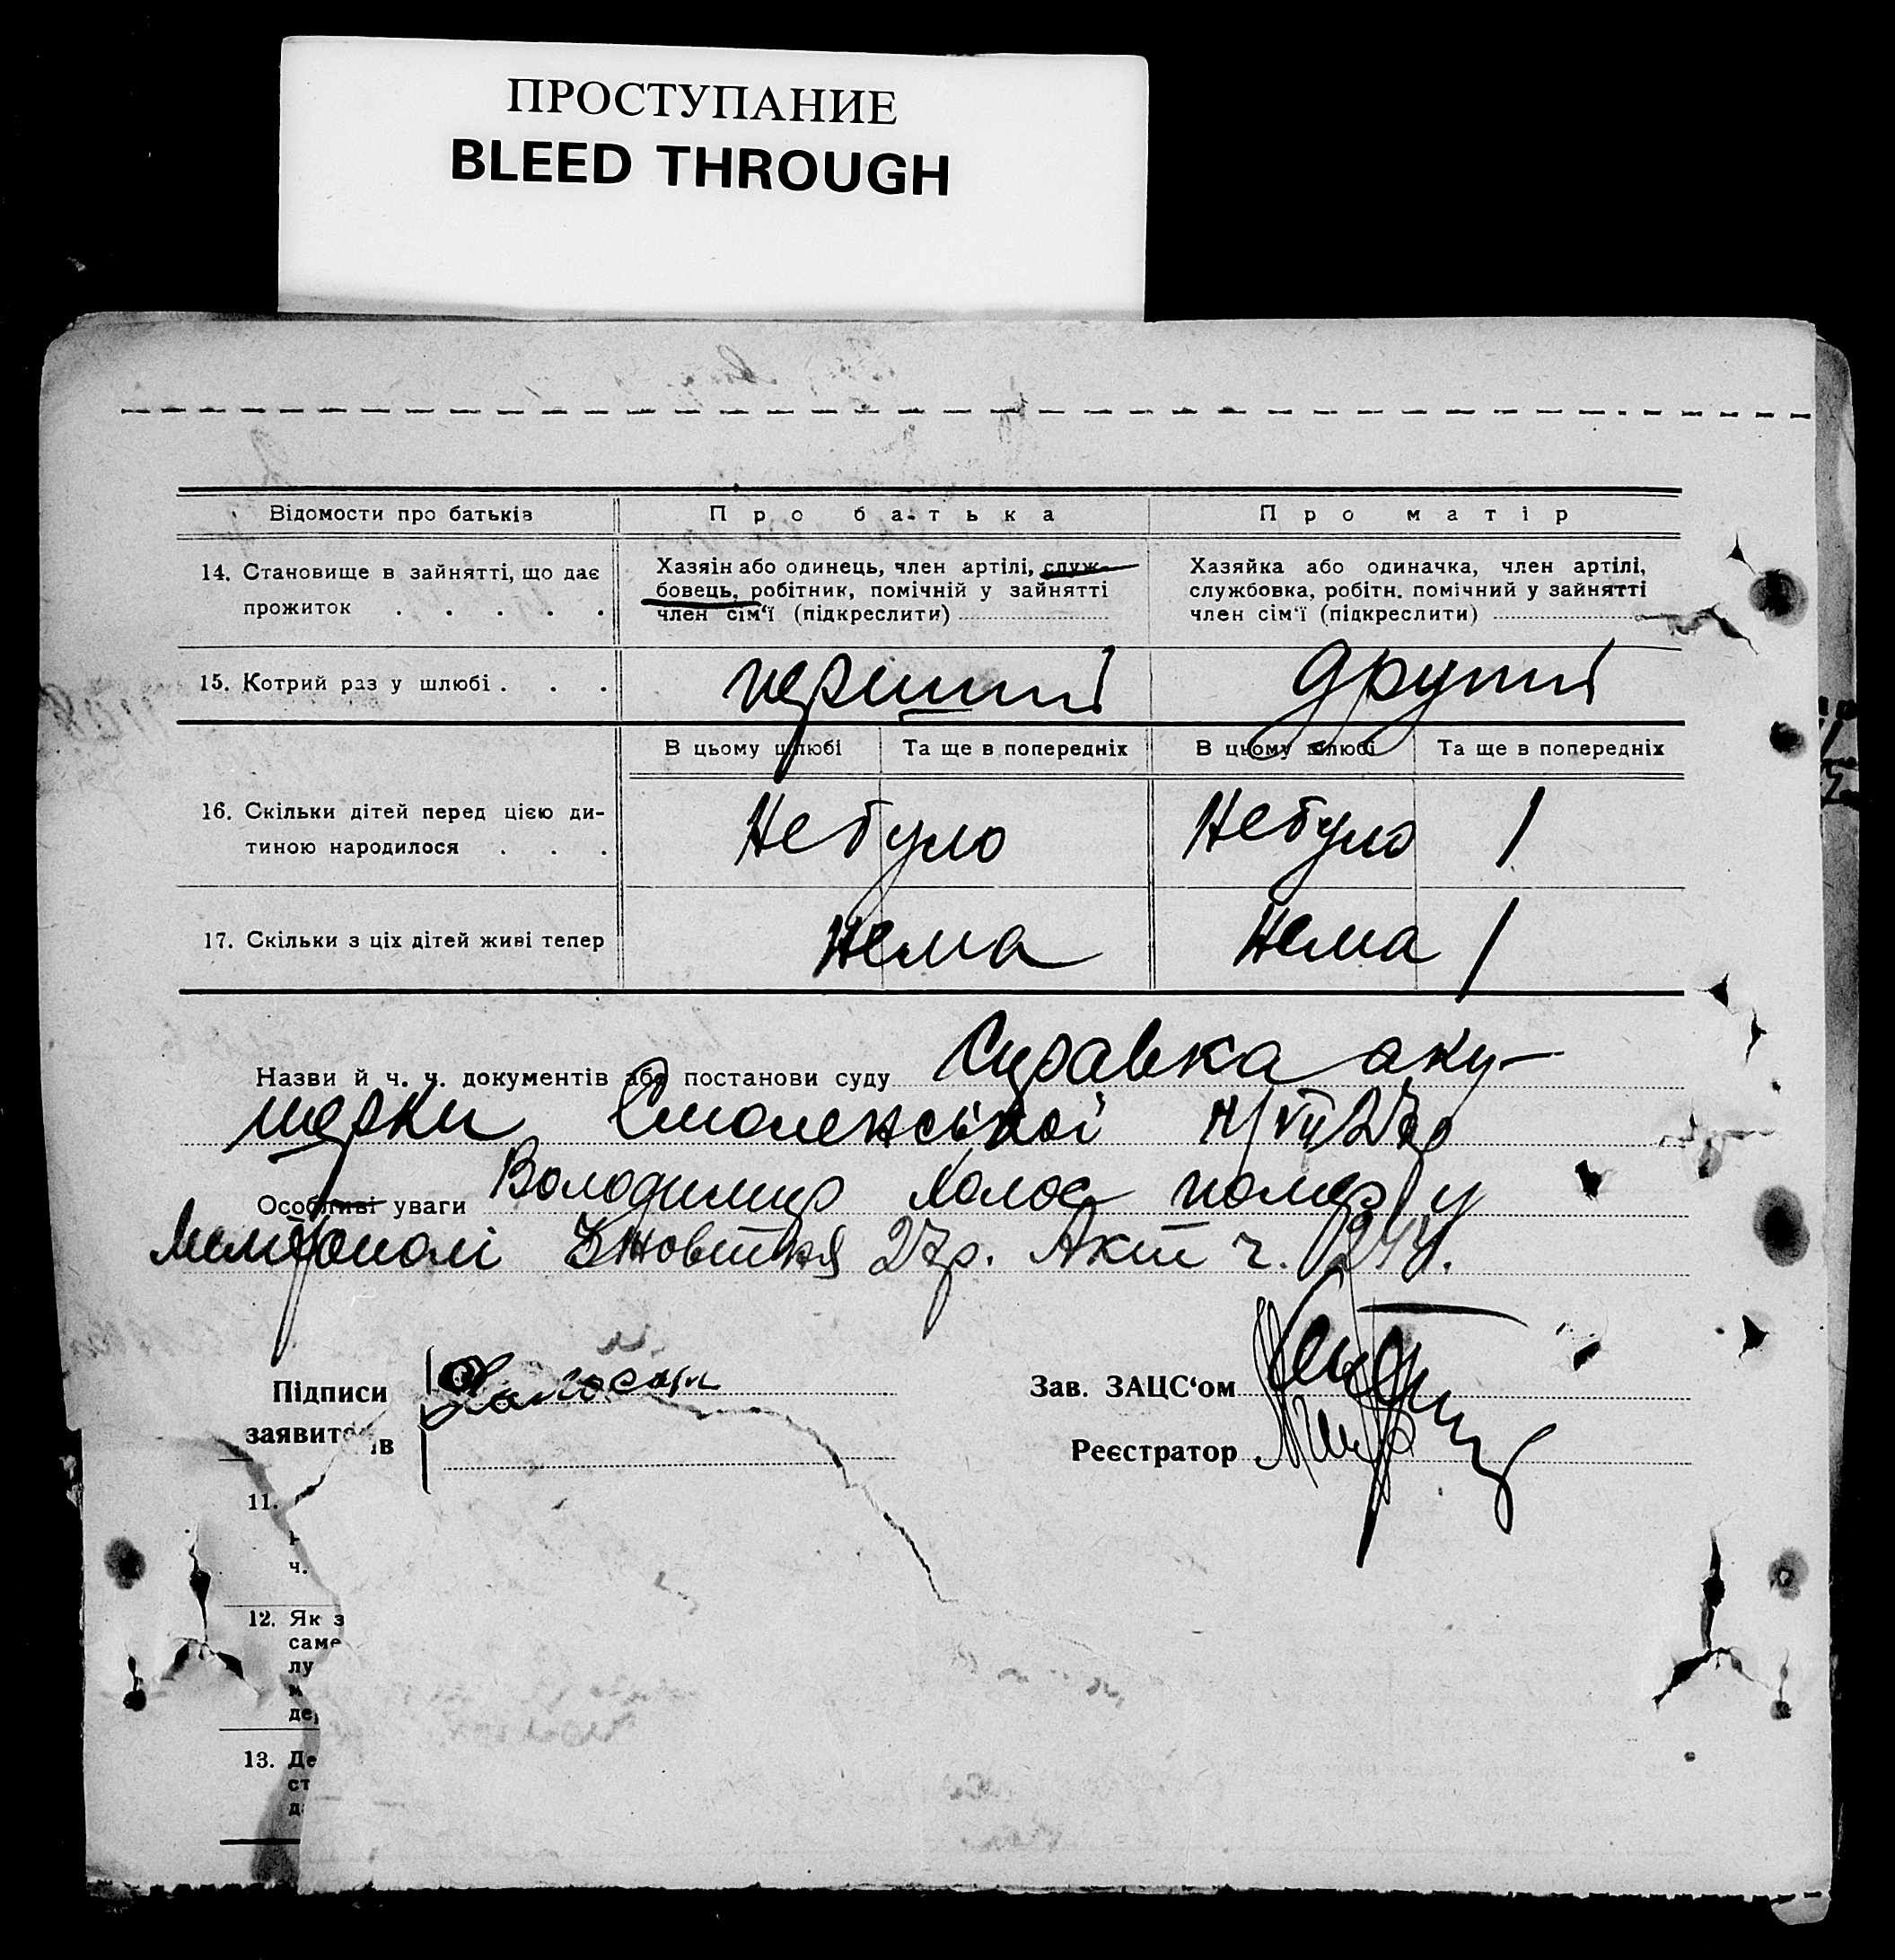 ПРОСТУПАНИЕ
BLEED THROUGH
Відомости про батьків
Про батька
Про матір
14. Становище в зайнятті, що дає
прожиток . . . . .
Хазяїн або одинець, член артілі, служ-
бовець, робітник, помічній у зайнятті
член сім'ї (підкреслити)
Хазяйка або одиначка, член артілі,
службовка, робітн. помічний у зайнятті
член сім'ї (підкреслити)
15. Котрий раз у шлюбі . . .
перший
другий
В цьому шлюбі
Та ще в попередніх
В цьому шлюбі
Та ще в попередніх
16. Скільки дітей перед цією ди-
тиною народилося . . .
Не було
Не було
1
17. Скільки з ціх дітей живі тепер
Нема
Нема
1
Назви й ч. ч. документів або постанови суду Справка аку-
шерки Смоленської VII 27р
Особливі уваги Володимир помер у
Жовтня 27р. Акт ч.
Підписи
заявителів
Зав. ЗАЦС'ом
Реєстратор
11.
ч.
12. Як з
саме
лу
м
дер
13. Де
ст
д